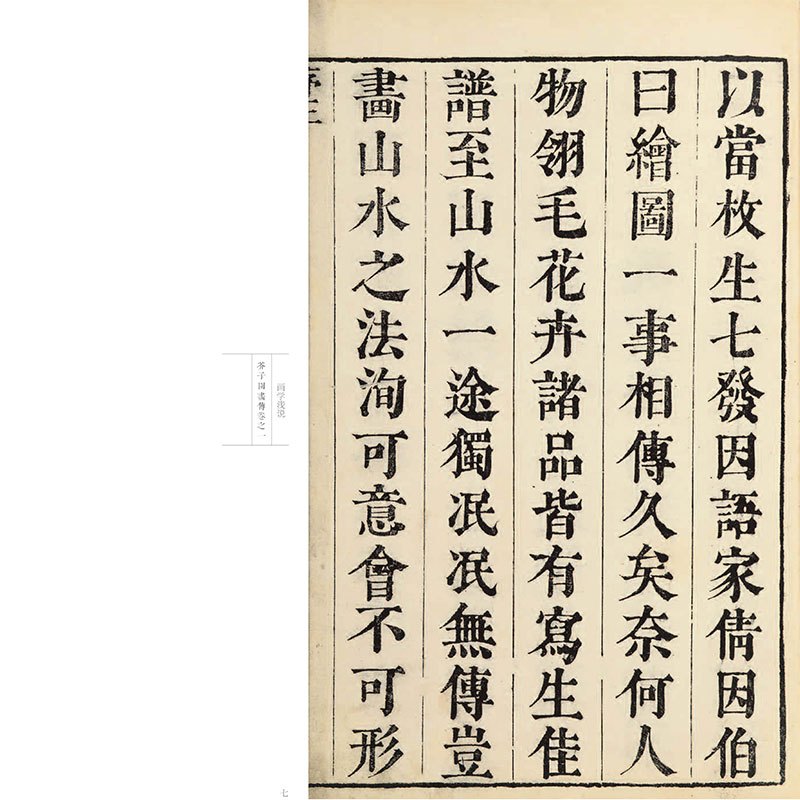 以當枚生七發因語家倩因伯
曰繪圖一事相傳久矣奈何人
物翎毛花卉諸品皆有寫生佳
譜至山水一途獨泯泯無傳豈
畫山水之法洵可意會不可形
画学浅说
芥子園畫傳卷之一
七